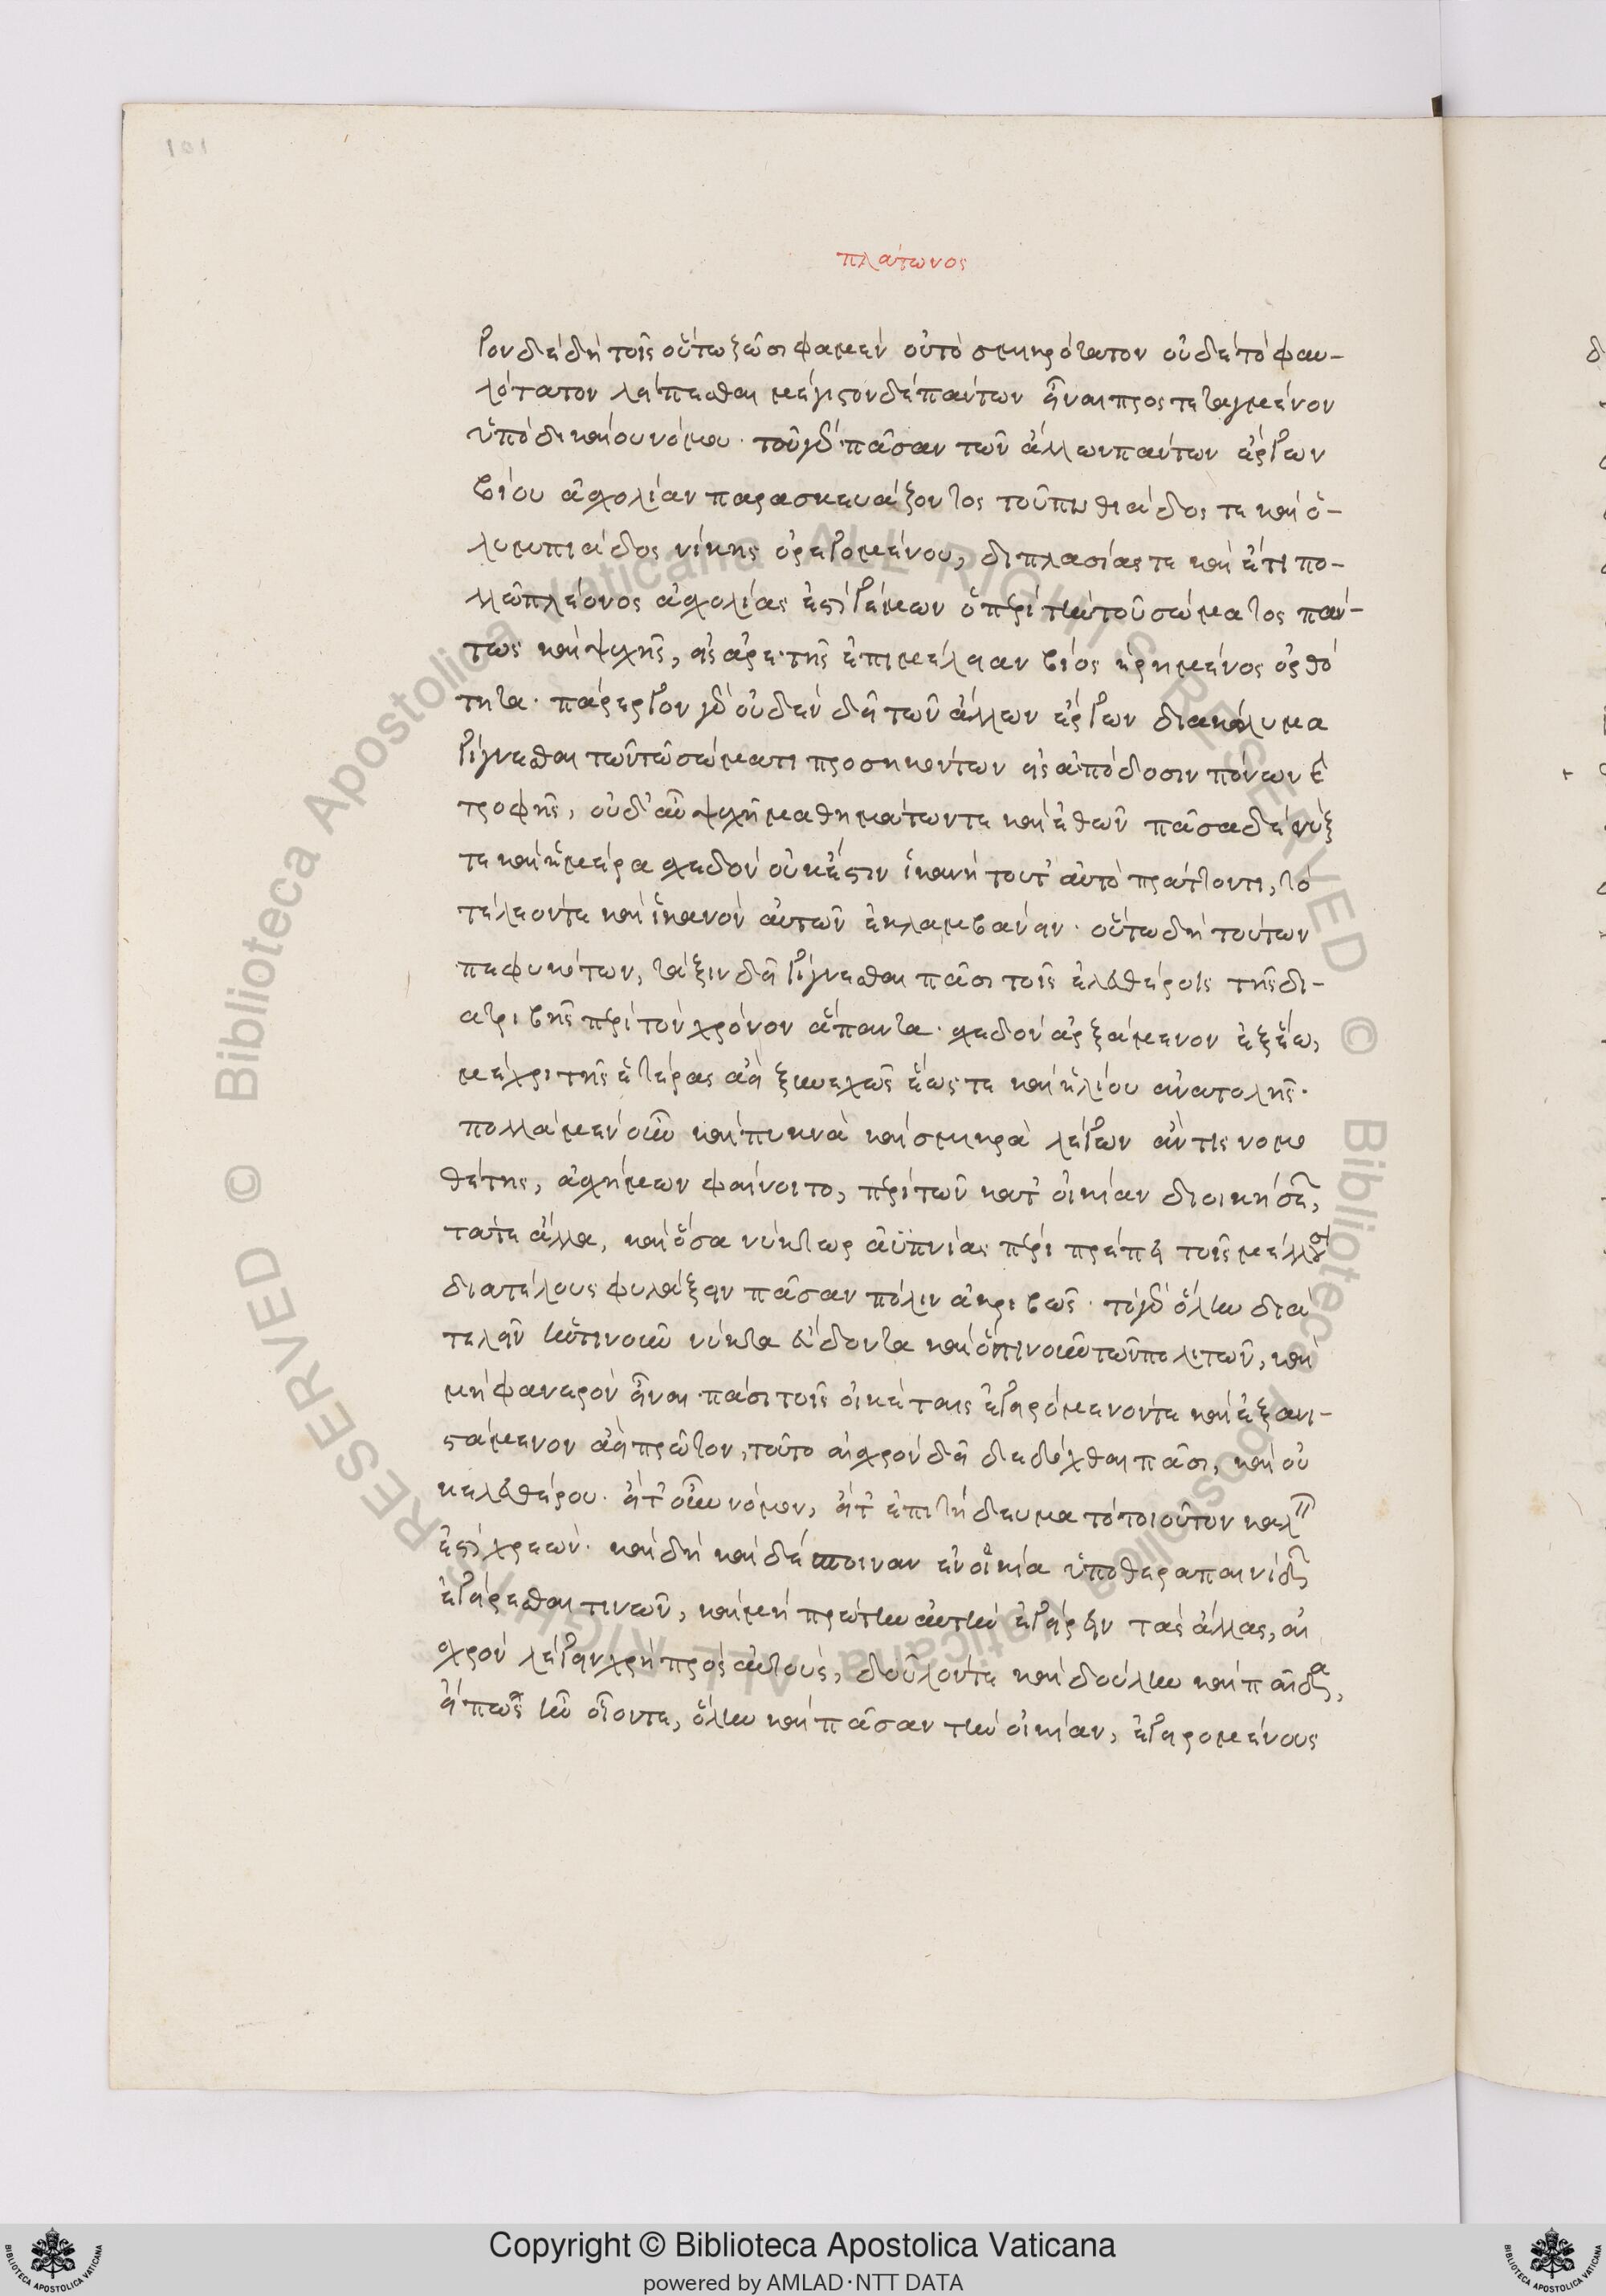 101
πλάτωνος
γον δὲ δὴ τοῖς οὕτω ζῶσι φαμὲν οὐ τὸ σμικρότατον οὐδὲ τὸ φαυ-
λότατον λείπεσθαι μέγιστον δὲ πάντων εἶναι προστεταγμένον
ὑπὸ δικαίου νόμου · τοῦ γὰρ πᾶσαν τῶν ἄλλων πάντων ἔργων
βίου ἀσχολίαν παρασκευάζοντος τοῦ πυθιάδος τε καὶ ὀ-
λυμπιάδος νίκης ὀρεγομένου, διπλασίας τε καὶ ἔτι πο-
λλῷ πλέονος ἀσχολίας ἐστὶ γέμων ὁ περὶ τὴν τοῦ σώματος παν-
τως καὶ ψυχῆς, εἰς ἀρετῆς ἐπιμέλειαν βίος εἰρημένος ὀρθό
τητα · πάρεργον γὰρ οὐδὲν δεῖ τῶν ἄλλων ἔργων διακώλυμα
γίγνεσθαι τῶν τῷ σώματι προσηκόντων εἰς ἀπόδοσιν πόνων καὶ
τροφῆς, οὐδ' αὖ ψυχῇ μαθημάτων τε καὶ ἐθῶν πᾶσα δὲ νύξ
τε καὶ ἡμέρα σχεδὸν οὐκ ἔστιν ἱκανὴ τοῦτ' αὐτὸ πράττοντι, τὸ
τέλεόν τε καὶ ἱκανὸν αὐτῶν ἐκλαμβάνειν · οὕτω δὴ τούτων
πεφυκότων, τάξιν δεῖ γίγνεσθαι πᾶσι τοῖς ἐλευθέροις τῆς δι-
ατριβῆς περὶ τὸν χρόνον ἅπαντα · σχεδὸν ἀρξάμενον ἐξ ἕω,
μέχρι τῆς ἑτέρας ἀεὶ ξυνεχῶς ἕως τε καὶ ἡλίου ἀνατολῆς ·
πολλὰ μὲν οὖν καὶ πυκνὰ καὶ σμικρὰ λέγων ἄν τις νομο
θέτης, ἀσχήμων φαίνοιτο, περὶ τῶν κατ' οἰκίαν διοικήσεων,
τά τε ἄλλα, καὶ ὅσα νύκτωρ ἀϋπνίας πέρι πρέπει τοῖς μέλλουσι
διὰ τέλους φυλάξειν πᾶσαν πόλιν ἀκριβῶς · τὸ γὰρ ὅλην δια
τελεῖν ἡντινοῦν νύκτα εὕδοντα καὶ ὁντινοῦν τῶν πολιτῶν, καὶ
μὴ φανερὸν εἶναι πᾶσι τοῖς οἰκέταις ἐγειρόμενόν τε καὶ ἐξανι-
στάμενον ἀεὶ πρῶτον, τοῦτο αἰσχρὸν δεῖ δεδόχθαι πᾶσι, καὶ οὐ
κ ἐλευθέρου · εἴτ' οὖν νόμον, εἴτ' ἐπιτήδευμα τὸ τοιοῦτον καλεῖν
ἐστὶ χρεών · καὶ δὴ καὶ δέσποιναν ἐν οἰκίᾳ ὑπὸ θεραπαινίδων
ἐγείρεσθαι τινῶν, καὶ μὴ πρώτην αὐτὴν ἐγείρειν τὰς ἄλλας, αἰ
σχρὸν λέγειν χρὴ πρὸς αὐτούς, δοῦλόν τε καὶ δούλην καὶ παῖδα,
εἴ πως ἦν οἷόν τε, ὅλην καὶ πᾶσαν τὴν οἰκίαν, ἐγειρομένους
© Biblioteca Apostolica Vaticana ALL RIGHTS RESERVED © Biblioteca Apostolica Vaticana ALL RIGHTS RESERVED
Copyright © Biblioteca Apostolica Vaticana
powered by AMLAD·NTT DATA
BIBLIOTECA APOSTOLICA VATICANA
BIBLIOTECA APOSTOLICA VATICANA